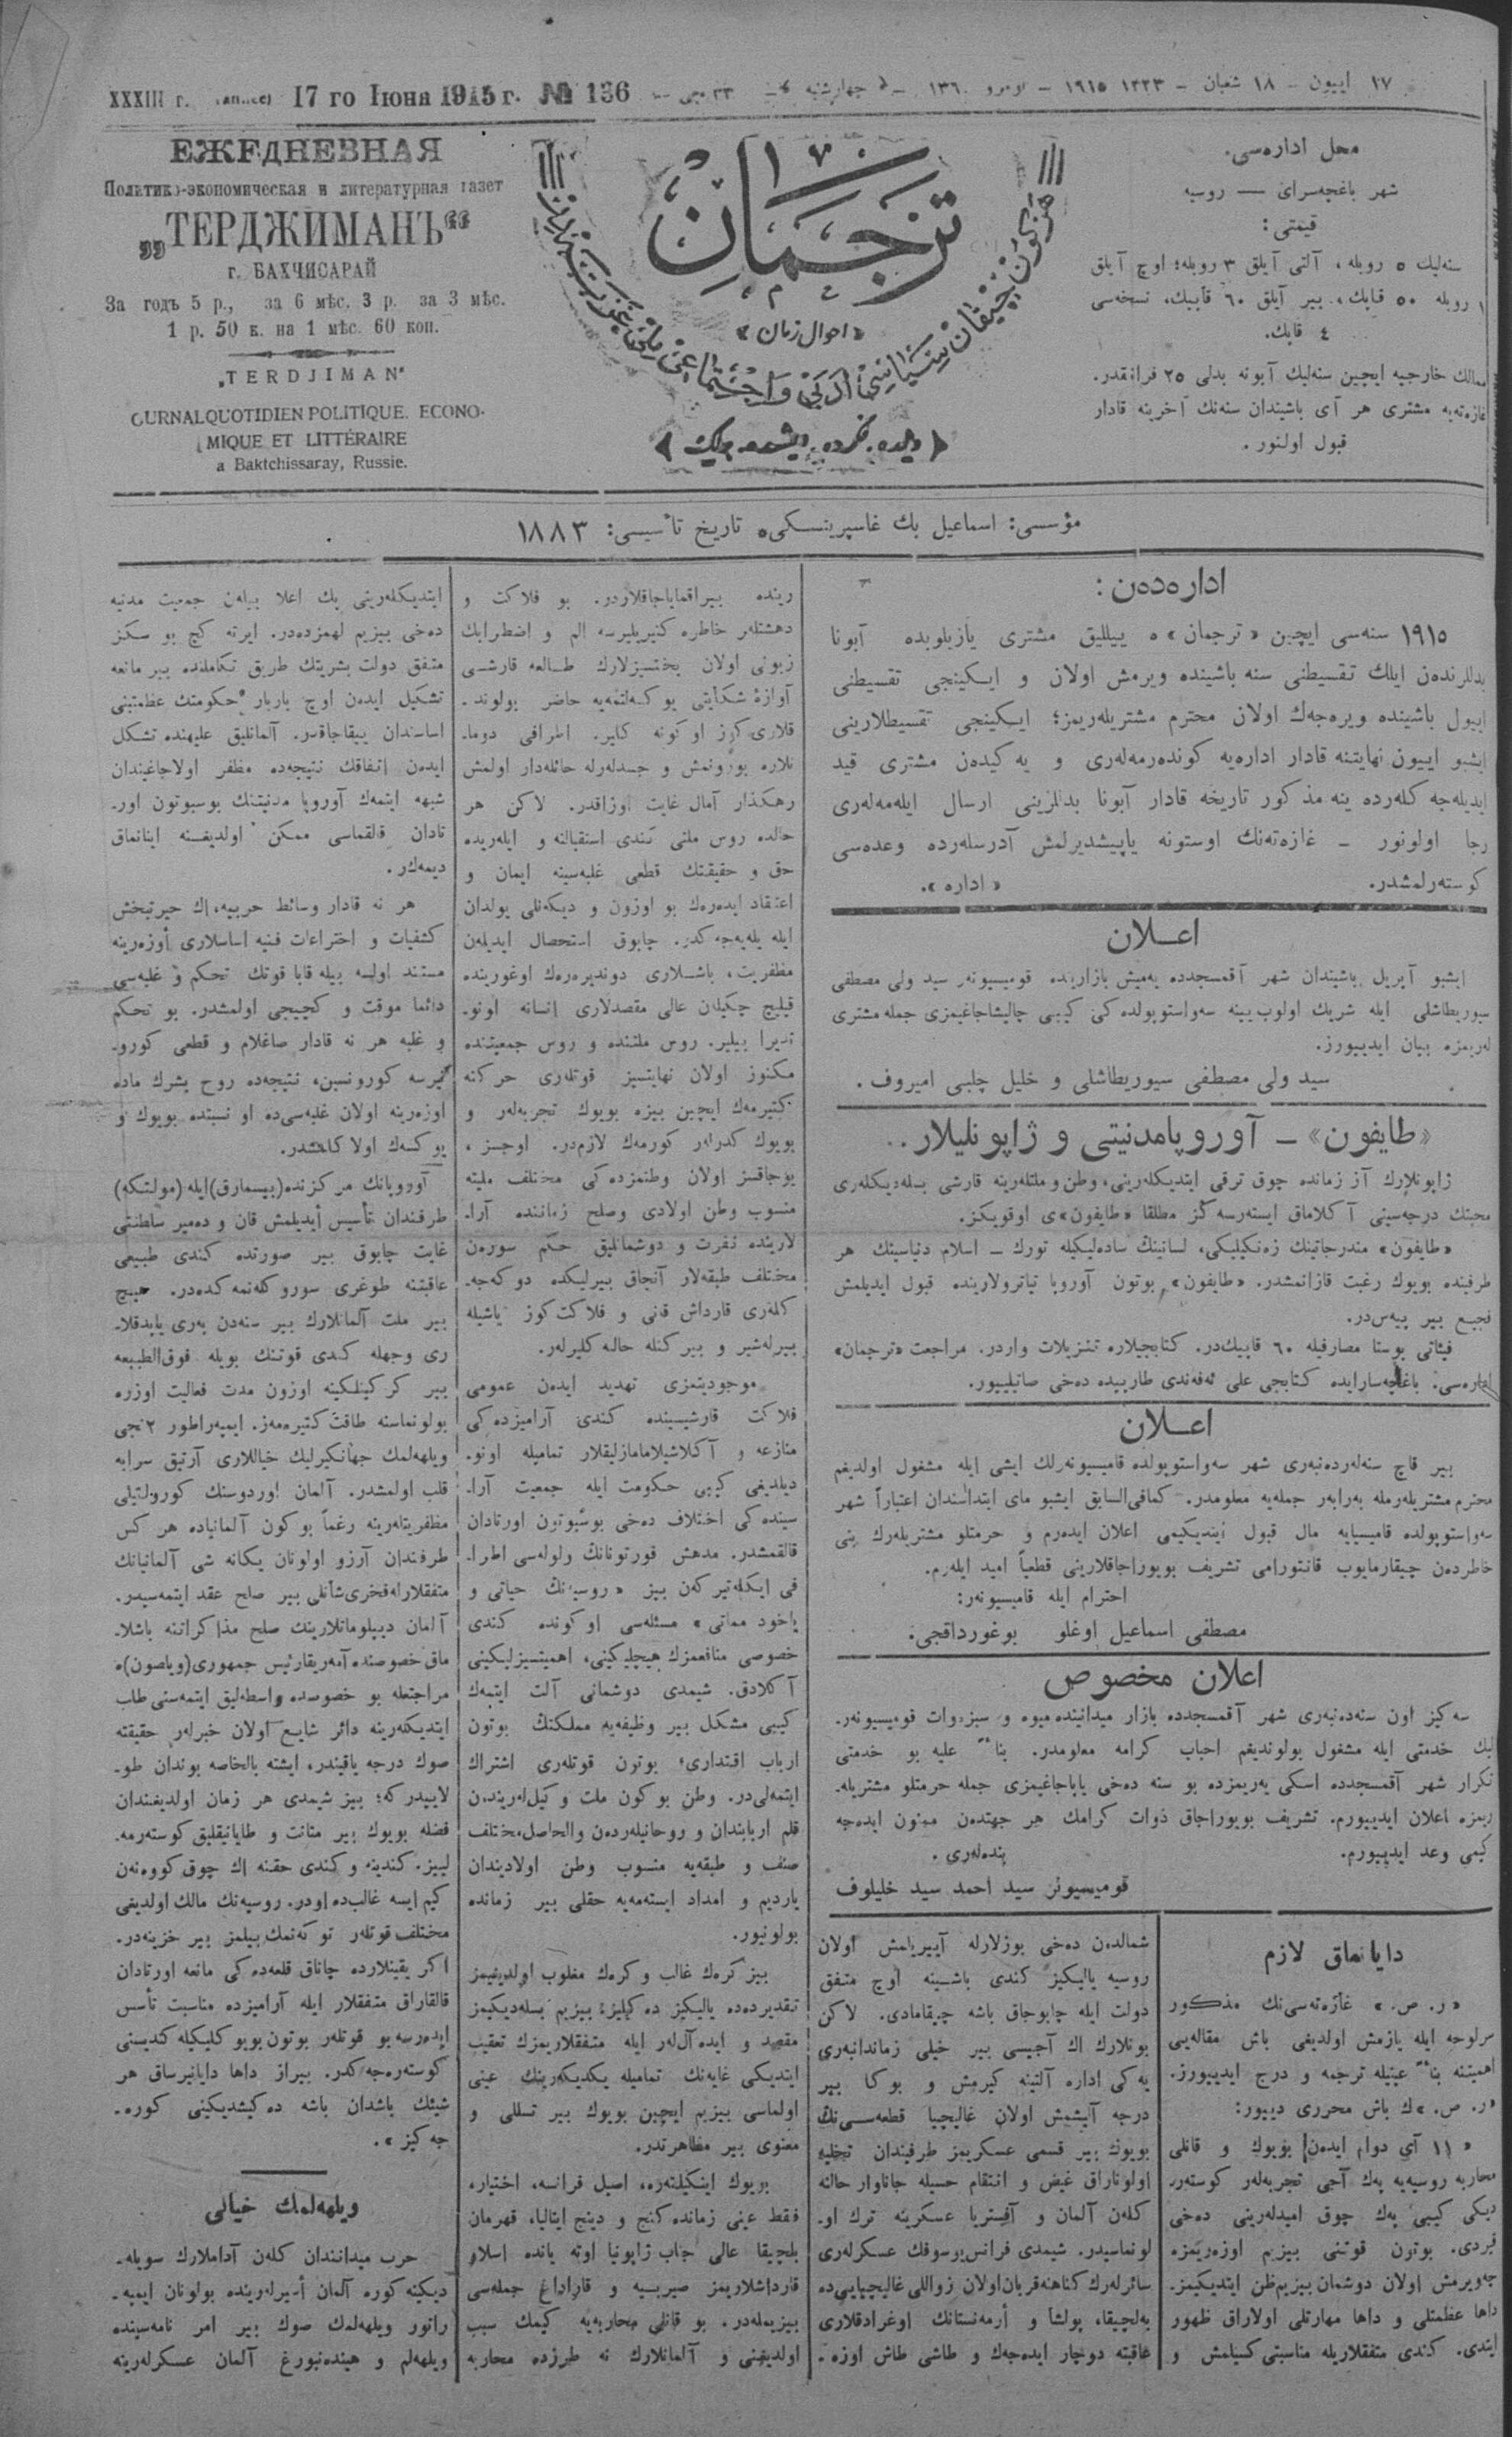 ١٧ اييون - ١٨ شعبان - ١٣٣٣ ١٩١٥ - نومرو ١٣٦
XXXIII г. 17 го Іюня 1915 г. № 136
ЕЖЕДНЕВНАЯ
Политико-экономическая и литературная газет
„ТЕРДЖИМАНЪ“
г. БАХЧИСАРАЙ
За годъ 5 р., за 6 мѣс. 3 р. за 3 мѣс.
1 р. 50 к. на 1 мѣс. 60 коп.
„TERDJIMAN“
OURNALQUOTIDIEN POLITIQUE. ECONO-
MIQUE ET LITTÉRAIRE
a Baktchissaray, Russie.
ترجمان
«احوال زمان»
محل اداره‌سی.
شهر باغچه‌سرای — روسیه
قیمتی:
سنه‌لیك ٥ روبله، آلتی آیلق ٣ روبله؛ اوچ آیلق
١ روبله ٥٠ قاپك، بیر آیلق ٦٠ قاپیك، نسخه‌سی
٤ قاپك.
ممالك خارجیه ایچین سنه‌لیك آبونه بدلی ٢٥ فرانقدر.
غازه‌ته‌یه مشتری هر آی باشیندان سنه‌نك آخرینه قادار
قبول اولنور.
مؤسسی: اسماعیل بك غاسپرینسكی، تاریخ تأسیسی: ١٨٨٣
اداره‌دن:
١٩١٥ سنه‌سی ایچین «ترجمان» ه ییللیق مشتری یازیلوبده آبونا
بدللرندن ایلك تقسیطنی سنه باشینده ویرمش اولان و ایكینجی تقسیطنی
اییول باشینده ویره‌جه‌ك اولان محترم مشتریله‌ریمز؛ ایكینجی تقسیطلارینی
ایشبو اییون نهایتنه قادار اداره‌یه كونده‌رمه‌له‌ری و یه‌كیدن مشتری قید
ایدیله‌جه‌كله‌رده ینه مذكور تاریخه قادار آبونا بدللرینی ارسال ایله‌مه‌له‌ری
رجا اولونور ـ غازه‌ته‌نك اوستونه یاپیشدیرلمش آدرسله‌رده وعده‌سی
كوسته‌رلمشدر. «اداره».
اعلان
ایشبو آپریل باشیندان شهر آقمسجدده یه‌میش بازارینده قومیسیونه‌ر سید ولی مصطفی
سیوریطاشلی ایله شریك اولوب ینه سه‌واستوپولده‌كی كیبی چالیشاجاغیمزی جمله مشتری
له‌ریمزه بیان ایدییورز.
سید ولی مصطفی سیوریطاشلی و خلیل چلبی امیروف.
«طایفون» ـ آوروپامدنیتی و ژاپونلیلار..
ژاپونلارك آز زمانده چوق ترقی ایتدیكله‌رینی، وطن و ملتله‌رینه قارشی بسله‌دیكله‌ری
محبتك درجه‌سینی آكلاماق ایسته‌رسه‌كز مطلقا «طایفون»ی اوقویكز.
«طایفون» مندرجاتینك زه‌نكیلیكی، لسانینك ساده‌لیكیله تورك ـ اسلام دنیاسینك هر
طرفینده بویوك رغبت قازانمشدر. «طایفون» بوتون آوروپا تیاترولارینده قبول ایدیلمش
فجیع بیر پیه‌س‌در.
فیئاتی پوستا مصارفیله ٦٠ قاپیك‌در. كتابجیلاره تنزیلات واردر. مراجعت «ترجمان»
اداره‌سی. باغچه‌سارایده كتابجی علی ئه‌فه‌ندی طارپیده دخی صاتیلییور.
اعلان
بیر قاچ سنه‌له‌رده‌نبه‌ری شهر سه‌واستوپولده قامیسیونه‌رلك ایشی ایله مشغول اولدیغم
محترم مشتریله‌رمله برابر جمله‌یه معلومدر. كمافی‌السابق ایشبو مای ابتداسندان اعتباراً شهر
سه‌واستوپولده قامیسیایه مال قبول ایتدیكیمی اعلان ایده‌رم و حرمتلو مشتریله‌رك بنی
خاطردن چیقارمایوب قانتورامی تشریف بویوراجاقلارینی قطعیاً امید ایله‌رم.
احترام ایله قامیسیونه‌ر:
مصطفی اسماعیل اوغلو بوغورداقجی.
اعلان مخصوص
سه‌كیز اون سنه‌ده‌نبه‌ری شهر آقمسجدده بازار میدانینده میوه و سبزه‌وات قومیسیونه‌ر
لیك خدمتی ایله مشغول بولوندیغم احباب كرامه معلومدر. بناءً علیه بو خدمتی
تكرار شهر آقمسجدده اسكی یه‌ریمزده بو سنه ده‌خی یاپاجاغیمزی جمله حرمتلو مشتریله‌-
ریمزه اعلان ایدییورم. تشریف بویوراجاق ذوات كرامك هر جهتدن ممنون ایده‌جه
كیمی وعد ایدییورم. بنده‌له‌ری.
قومیسیونر سید احمد سید خلیلوف
دایانماق لازم
«ر. ص.» غازه‌ته‌سی‌نك مذكور
سرلوحه ایله یازمش اولدیغی باش مقاله‌یی
اهمیتنه بناءً عینیله ترجمه و درج ایدییورز.
«ر. ص.»ك باش محرری دییور:
«١١ آی دوام ایده‌ن بویوك و قانلی
محاربه روسیه‌یه په‌ك آجی تجربه‌له‌ر كوسته‌ر-
دیكی كیبی په‌ك چوق امیدله‌رینی ده‌خی
قیردی. بوتون قوتنی بیزیم اوزه‌ریمزه
چه‌ویرمش اولان دوشمان بیزیم ظن ایتدیكیمز
داها عظمتلی و داها مهارتلی اولاراق ظهور
ایتدی. كندی متفقلاریله مناسبتی كسیلمش و
شمالدن ده‌خی بوزلارله آییریلمش اولان
روسیه یالیكیز كندی باشینه اوچ متفق
دولت ایله چابوجاق باشه چیقامادی. لاكن
بونلارك اك آجیسی بیر خیلی زماندانبه‌ری
یه‌كی اداره آلتینه كیرمش و بوكا بیر
درجه آلیشمش اولان غالیچیا قطعه‌سی‌نك
بویوك بیر قسمی عسكریمز طرفیندان تخلیه
اولوناراق غیض و انتقام حسیله جاناوار حالنه
كلن آلمان و آوستریا عسكرینه ترك او-
لونماسیدر. شیمدی فرانس‌یوسوفك عسكرله‌ری
سائرله‌رك كناهنه قربان‌اولان زواللی غالیچیایی‌ده
به‌لچیقا، پولشا و أرمه‌نستانك اوغرادقلاری
عاقبته دوچار ایده‌جه‌ك و طاشی طاش اوزه-
رینده بیراقمایاجاقلاردر. بو فلاكت و
دهشتله‌ر خاطره كتیریلیرسه الم و اضطرابك
زبونی اولان بختسزلارك طالعه قارشی
آوازۀ شكایتی یوكسه‌لتمه‌یه حاضر بولوند-
رهكذار آمال غایت اوزاقدر. لاكن هر
حالده روس ملتی كندی استقبالنه و ایله‌ریده
حق و حقیقتك قطعی غلبه‌سینه ایمان و
اعتقاد ایده‌رك بو اوزون و دیكه‌نلی یولدان
ایله‌یله‌یه‌جه‌كدر. چابوق استحصال ایدیلمه‌ن
مظفریت، باشلاری دوندیره‌ره‌ك اوغورینده
قیلیج چكیلن عالی مقصدلاری إنسانه اونو-
تدیرا بیلیر. روس ملتنده و روس جمعیتنده
مكنوز اولان نهایتسیز قوتله‌ری حركته
كتیرمه‌ك ایچین بیزه بویوك تجربه‌له‌ر و
بویوك كدرله‌ر كورمه‌ك لازم‌در. اوجسز،
بوجاقسز اولان وطنمزده‌كی مختلف ملیته
منسوب وطن اولادی وصلح زماننده آرا-
لارینده نفرت و دوشمانلیق حكم سوره‌ن
مختلف طبقه‌لار آنجاق بیرلیكده دوكه‌جه-
كله‌ری قارداش قانی و فلاكت كوز یاشیله
بیرله‌شیر و بیر كتله حالنه كلیرله‌ر.
موجودیتمزی تهدید ایده‌ن عمومی
فلاكت قارشیسینده كندی آرامیزده‌كی
منازعه و آكلاشیلامامازلیقلار تمامیله اونو-
دیلدیغی كیبی حكومت ایله جمعیت آرا-
سینده‌كی اختلاف ده‌خی بوسبوتون اورتادان
قالقمشدر. مدهش فورتونانك ولوله‌سی اطرا-
فی ایكله‌تیركه‌ن بیز «روسیه‌نك حیاتی و
یاخود مماتی» مسئله‌سی اوكونده كندی
خصوصی منافعمزك هیچلیكینی، اهمیتسیزلیكینی
آكلادق. شیمدی دوشمانی آلت ایتمه‌ك
كیبی مشكل بیر وظیفه‌یه مملكتك بوتون
ارباب اقتداری، بوتون قوتله‌ری اشتراك
ایتمه‌لی‌در. وطن بوكون ملت وكیل‌له‌ریندن
قلم اربابندان و روحانیله‌رده‌ن والحاصل مختلف
صنف و طبقه‌یه منسوب وطن اولادیندان
یاردیم و امداد ایسته‌مه‌یه حقلی بیر زمانده
بولونیور.
بیز كره‌ك غالب و كره‌ك مغلوب اولدیغیمز
تقدیرده‌ده یالیكیز ده‌كیلیز؛ بیزیم بسله‌دیكیمز
مقصد و ایده‌آل‌له‌ر ایله متفقلاریمزك تعقیب
ایتدیكی غایه‌نك تمامیله یكدیكه‌رینك عینی
اولماسی بیزیم ایچین بویوك بیر تسللی و
معنوی بیر مظاهرتدر.
بویوك اینكیلته‌ره، اصیل فرانسه، اختیار،
فقط عینی زمانده كنج و دینج ایتالیا، قهرمان
بلچیقا عالی جناب ژاپونیا اوته یانده اسلاو
قارداشلاریمز صیربییه و قاراداغ جمله‌سی
بیزیمله‌در. بو قانلی محاربه‌یه كیمك سبب
اولدیغنی و آلمانلارك نه طرزده محاربه
ایتدیكله‌رینی پك اعلا بیلن جمعیت مدنیه
ده‌خی بیزیم له‌مزده‌در. ایرته كچ بو سكز
متفق دولت بشریتك طریق تكاملنده بیر مانعه
تشكیل ایده‌ن اوچ باربار حكومتك عظمتینی
اساسندان ییقاجاقدر. آلمانلیق علیهنده تشكل
ایده‌ن إتفاقك نتیجه‌ده مظفر اولاجاغیندان
شبهه ایتمه‌ك آوروپا مدنیتنك بوسبوتون اور-
تادان قالقماسی ممكن اولدیغینه اینانماق
دیمه‌كدر.
هر نه قادار وسائط حربیه، اك حیرتبخش
كشفیات و اختراعات فنیه اساسلاری أوزه‌رینه
مستند اولسه بیله قابا قوتك تحكم و غلبه‌سی
دائما موقت و كچیجی اولمشدر. بو تحكم
و غلبه هر نه قادار صاغلام و قطعی كورو-
نیرسه كورونسین، نتیجه‌ده روح بشرك ماده
اوزه‌رینه اولان غلبه‌سی‌ده او نسبتده بویوك و
یوكسه‌ك اولا كلمشدر.
آوروپانك مركزنده (بیسمارق) ایله (مولتكه)
طرفندان تأسیس أیدیلمش قان و ده‌میر سلطنتی
غایت چابوق بیر صورتده كندی طبیعی
عاقبتنه طوغری سوروكله‌نمه‌كده‌در. هیچ
بیر ملت آلمانلارك بیر سنه‌دن به‌ری یاپدقلا-
ری وجهله كندی قوتنك بویله فوق‌الطبیعه
بیر كركینلكینه اوزون مدت فعالیت اوزره
بولونماسنه طاقت كتیره‌مه‌ز. ایمپه‌راطور ٢نجی
ویلهه‌لمك جهانكیرلیك خیاللاری آرتیق سرابه
قلب اولمشدر. آلمان اوردوسنك كورولتیلی
مظفریتله‌رینه رغماً بوكون آلمانیاده هر كس
طرفندان آرزو اولونان یكانه شی آلمانیانك
متفقلارله فخری شأنلی بیر صلح عقد ایتمه‌سیدر.
آلمان دیپلوماتلارینك صلح مذاكراتنه باشلا-
ماق خصوصنده آمه‌ریقا رئیس جمهوری (ویلصون)ه
مراجتعله بو خصوصده واسطه‌لیق ایتمه‌سنی طلب
ایتدیكله‌رینه دائر شایع اولان خبرله‌ر حقیقته
صوك درجه یاقیندر، ایشته بالخاصه بوندان طو-
لاییدر كه؛ بیز شیمدی هر زمان اولدیغندان
فضله بویوك بیر متانت و طایانیقلیق كوسته‌رمه-
لییز. كندینه و كندی حقنه اك چوق كووه‌نه‌ن
كیم ایسه غالب‌ده اودر. روسیه‌نك مالك اولدیغی
مختلف قوتله‌ر توكه‌نمك بیلمز بیر خزینه‌در.
اكر یقینلارده چاناق قلعه‌ده‌كی مانعه اورتادان
قالقاراق متفقلار ایله آرامیزده مناسبت تأسس
ایده‌رسه بو قوتله‌ر بوتون بویوكلیكیله كندیسنی
كوسته‌ره‌جه‌كدر. بیراز داها دایانیرساق هر
شیئك باشدان باشه ده‌كیشدیكینی كوره-
جه‌كیز».
ویلهه‌لمك خیالی
حرب میدانندان كلن آداملارك سویله-
دیكنه كوره آلمان أسیرله‌رینده بولونان ایمپه-
راتور ویلهه‌لمك صوك بیر امر نامه‌سینده
ویلهه‌لم و هیندنبورغ آلمان عسكرله‌رینه